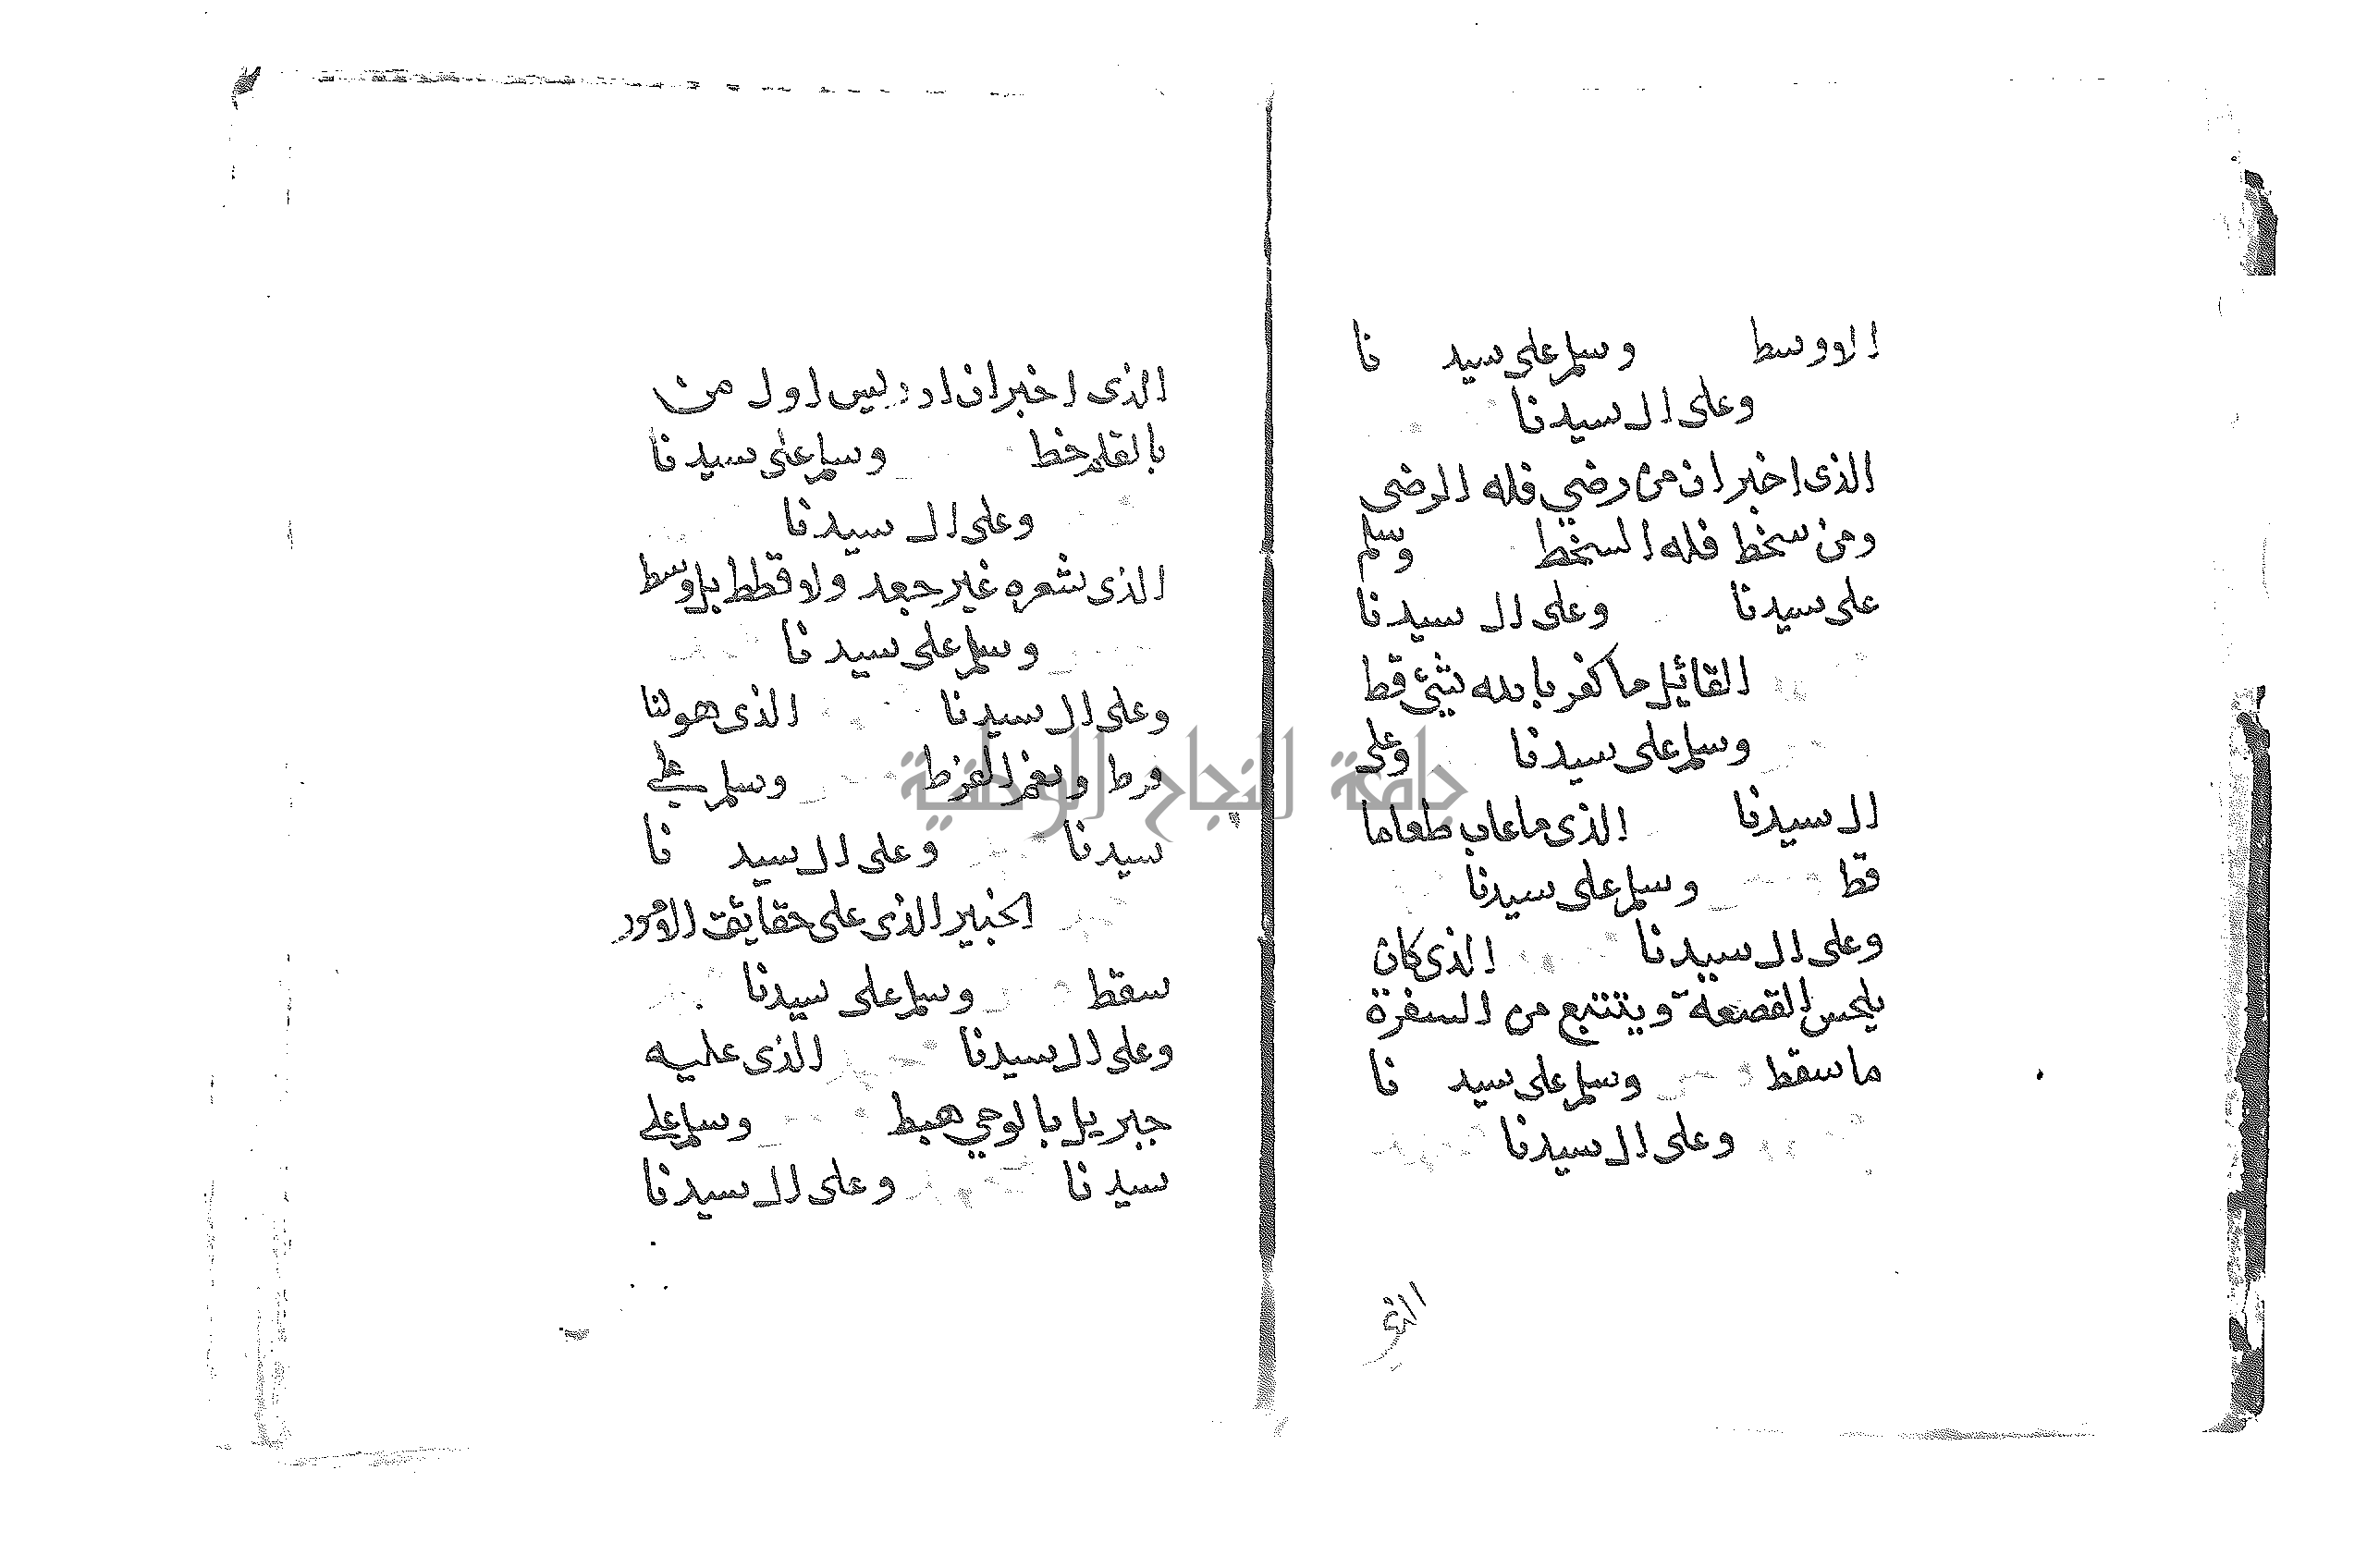 الاوسط وسلم على سيد نا
وعلى ال سيدنا
الذى اخبر ان من رضي فله الرضى
ومن سخط فله السخط وسلم
على سيدنا وعلى ال سيدنا
القائيل ما كفر بالله نبئ قط
وسلم على سيدنا وعلى
ال سيدنا الذى ما عاب طعاما
قط وسلم على سيدنا
وعلى ال سيدنا الذى كان
يلحس القصعة ويتتبع من السفرة
ما سقط وسلم على سيد نا
وعلى ال سيدنا
الذى اخبر ان ادريس اول من
بالقلم خط وسلم على سيدنا
وعلى ال سيدنا
الذى شعره غير جعد ولا قطط بل وسط
وسلم على سيدنا
وعلى ال سيدنا الذى هو لنا
فرط ونعم الفرط وسلم على
سيدنا وعلى ال سيد نا
الخبير الذى على حقايق الامور
سقط وسلم على سيدنا
وعلى ال سيدنا الذى عليه
جبريل بالوحي هبط وسلم على
سيدنا وعلى ال سيدنا
جامعة النجاح الوطنية